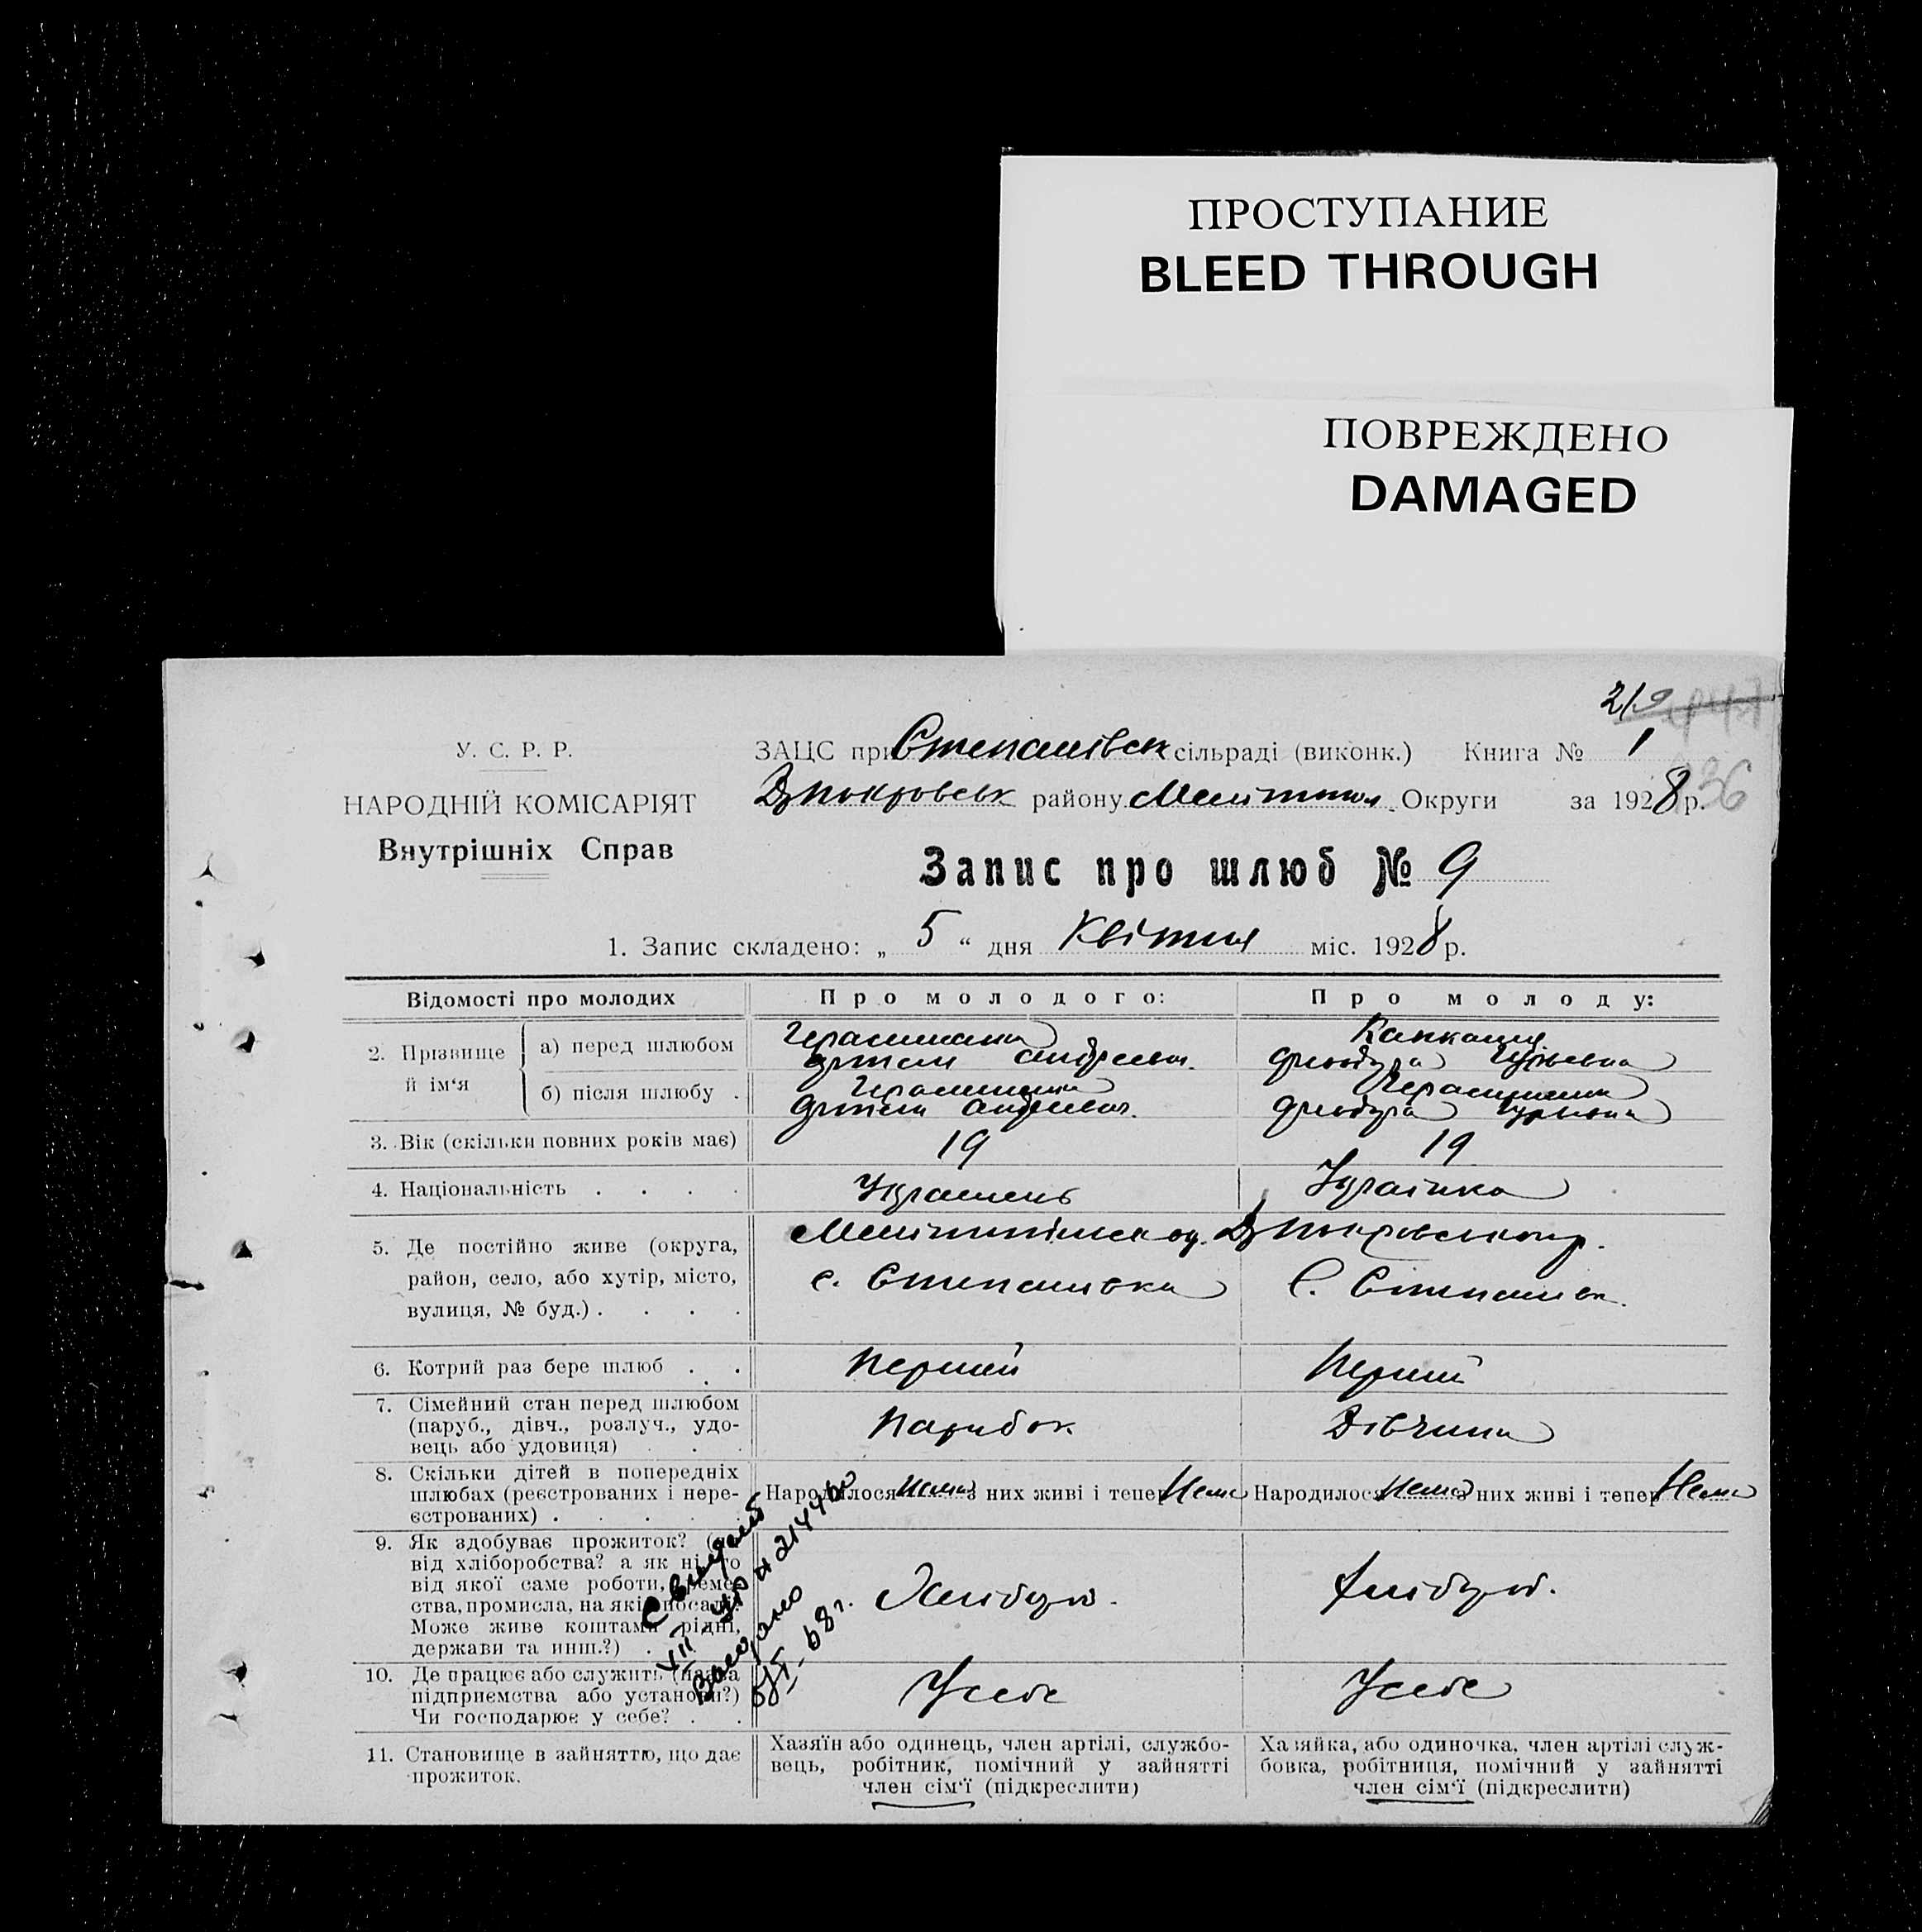 ПРОСТУПАНИЕ
BLEED THROUGH
ПОВРЕЖДЕНО
DAMAGED
219
У. С. Р. Р.
ЗАЦС при Степанівск сільраді (виконк.) Книга № 1
НАРОДНІЙ КОМІСАРІЯТ
Дпокровськ району Мелітопол. Округи за 1928 р.
36
Внутрішніх Справ
Запис про шлюб № 9
1. Запис складено: „ 5 “ дня Квітня міс. 1928 р.
Відомості про молодих
Про молодого:
Про молоду:
2. Прізвище й ім‘я
а) перед шлюбом
Андреевич
б) після шлюбу .
Андреевич
3. Вік (скільки повних років має)
19
19
4. Національність . . . .
Украинець
Українка
5. Де постійно живе (округа,
район, село, або хутір, місто,
вулиця, № буд.) . . . .
с. Степановка
С. Степанівк.
6. Котрий раз бере шлюб . .
Перший
Перший
7. Сімейний стан перед шлюбом
(паруб., дівч., розлуч., удо-
вець або удовиця) . . .
Парубок
Дівчина
8. Скільки дітей в попередніх
шлюбах (реєстрованих і нере-
єстрованих) . . . . .
Народилося Нема з них живі і тепер Нема
Народилося Нема з них живі і тепер Нема
9. Як здобуває прожиток? (
від хліборобства? а як ні, то
від якої саме роботи, реме-
ства, промисла, на якій посаді?
Може живе коштами рідні,
держави та инш.?) .
Хлібороб.
Хлібороб.
10. Де працює або служить (назва
підприємства або установи?)
Чи господарює у себе? . .
Усебе
Усебе
11. Становище в зайняттю, що дає
прожиток.
Хазяїн або одинець, член артілі, службо-
вець, робітник, помічний у зайнятті
член сім‘ї (підкреслити)
Хазяйка, або одиночка, член артілі служ-
бовка, робітниця, помічний у зайнятті
член сім‘ї (підкреслити)
VII-УР № 214460
68 г.